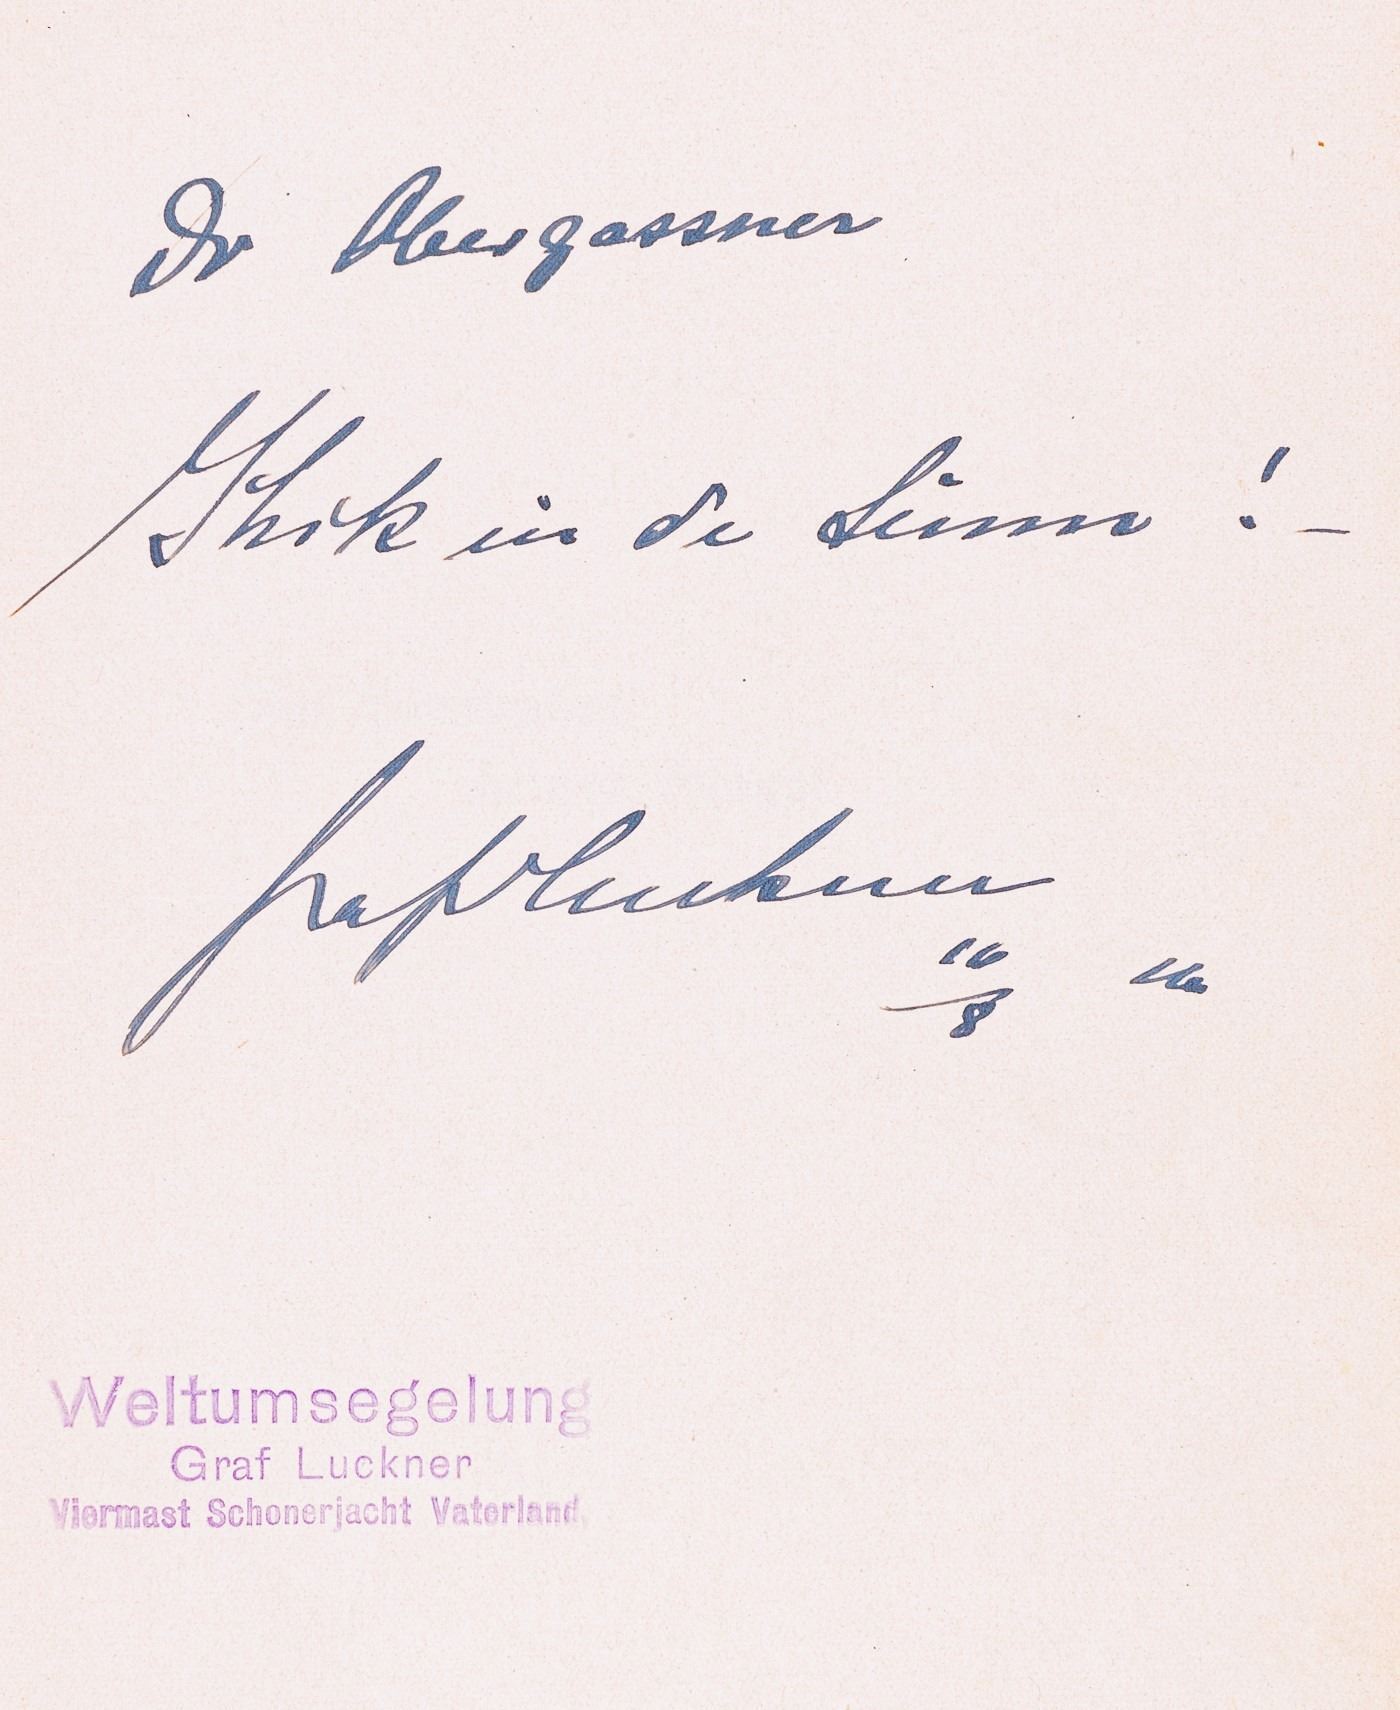 Dr Obergassner
Kiek in de Sünn ! –
Graf Luckner
16
8
Weltumsegelung
Graf Luckner
Viermast Schonerjacht Vaterland.